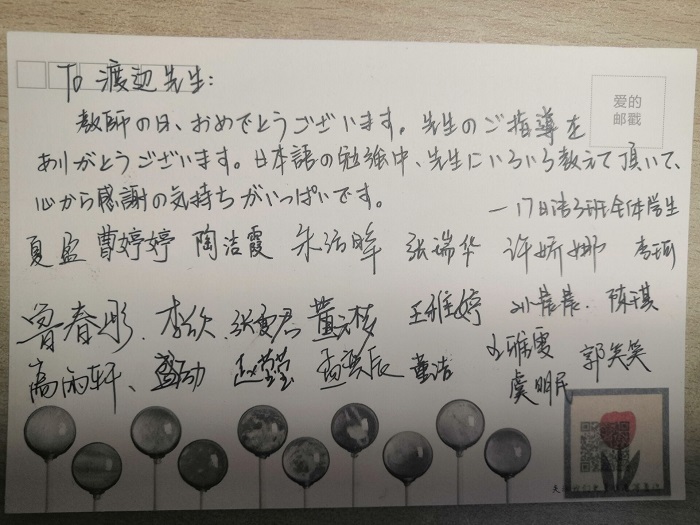 To 渡辺先生:
爱的
邮戳
教師の日、おめでとうございます。先生のご指導を
ありがとうございます。日本語の勉強中、先生にいろいろ教えて頂いて、
心から感謝の気持ちがいっぱいです。
—17日语3班全体学生
夏盈 曹婷婷 陶洁霞 张瑞华 许娇娜
曾春彤. 李欣. 王雅婷 陈琪
高雨轩、盛劲 赵莹莹 董洁 王雅雯 郭笑笑
虞明民